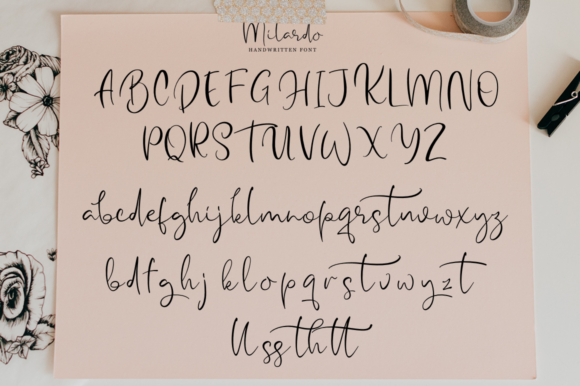 Milardo
HANDWRITTEN FONT
ABCDEFGHIJKLMNO
PQRSTUVWXYZ
abcdefghijklmnopqrstuvwxyz
bdfghj klopqrstuvwyzt
ll ss th tt